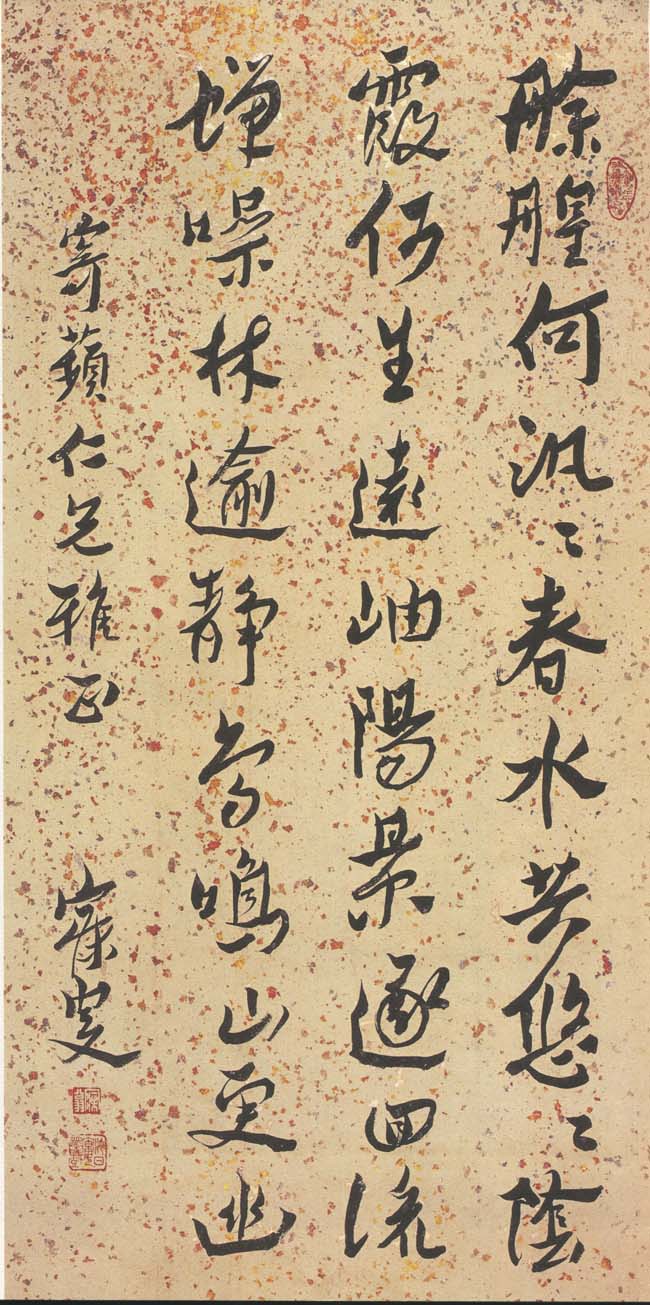 艅艎何汎〻春水共悠〻陰
霞何生遠岫陽景逐回流
蟬噪林逾靜鳥鳴山更幽
寄蘋仁兄雅正 寐叟